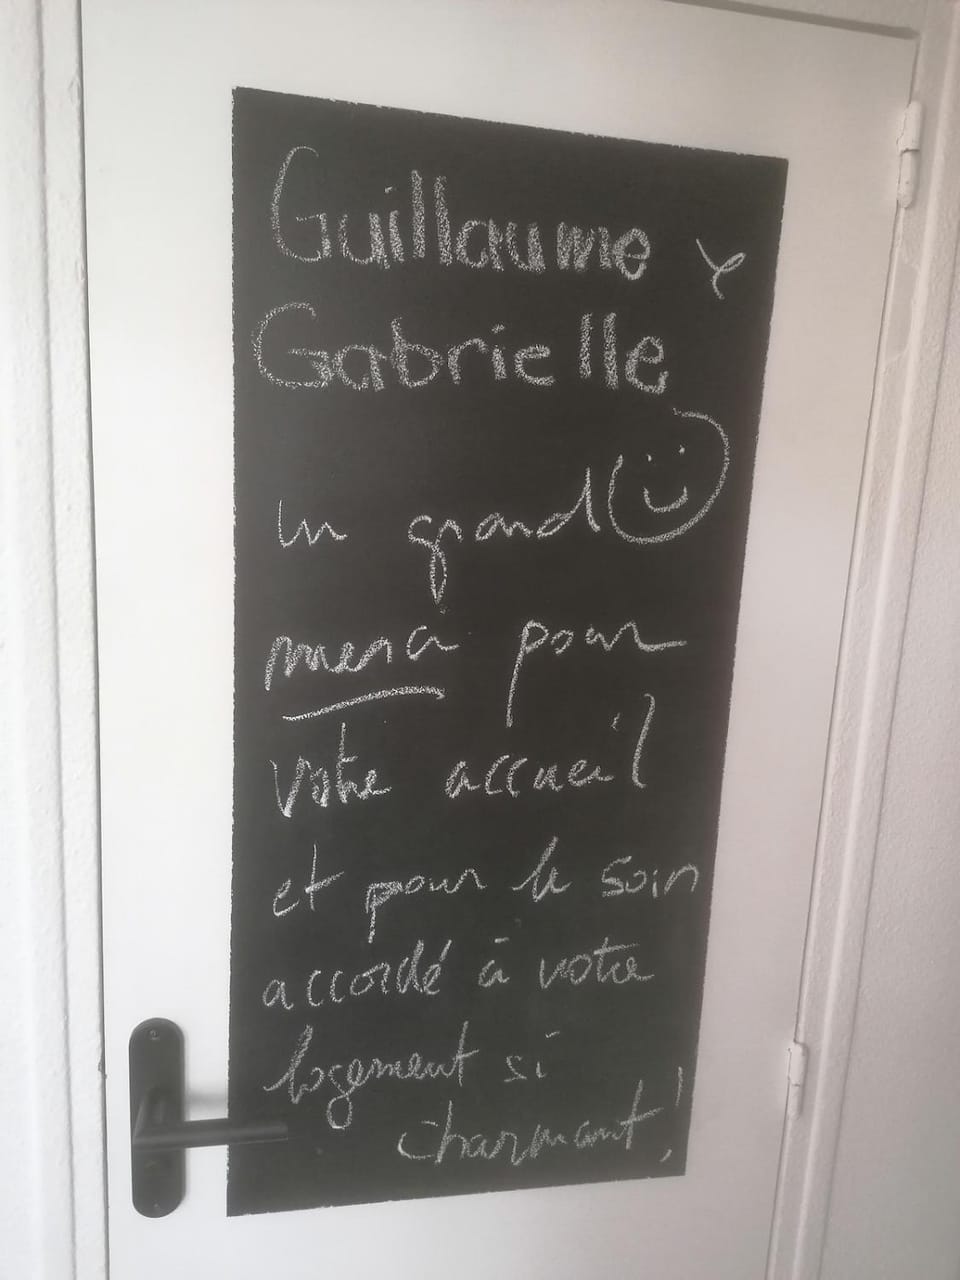 Guillaume &
Gabrielle
un grand
merci pour
votre accueil
et pour le soin
accordé à votre
logement si
charmant !